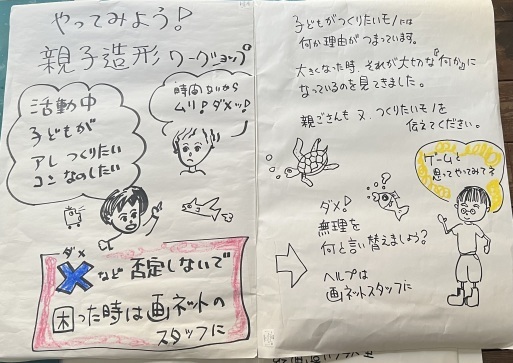 やってみよう!
親子造形ワークショップ
時間ないから
ムリ!ダメッ!
活動中
子どもが
アレ つくりたい
コン なのしたい
ダメ
✕など否定しないで
困った時は画ネットの
スタッフに
子どもがつくりたいモノには
何か理由がつまっています。
大きくなった時、それが大切な『何か』に
なっているのを見てきました。
親ごさんも 又、つくりたいモノを
伝えてください。
ゲームと
思ってやってみてる
ダメ!
無理を
何と言い替えましょう?
ヘルプは
画ネットスタッフに